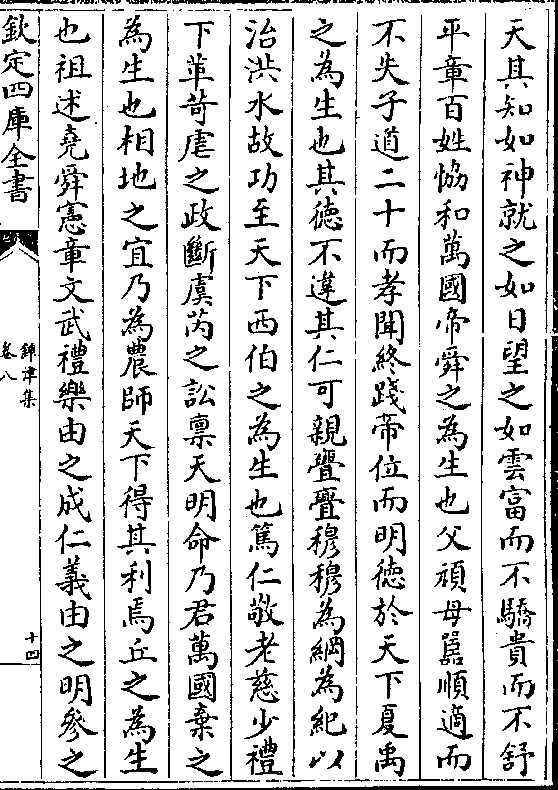 天其知如神就之如日望之如雲富而不驕貴而不舒
平章百姓恊和萬國帝舜之為生也父頑母嚚順適而
不失子道二十而孝聞終踐帝位而明徳於天下夏禹
之為生也其徳不違其仁可親亹亹穆穆為綱為紀以
治洪水故功至天下西伯之為生也篤仁敬老慈少禮
下革苛虐之政斷虞芮之訟禀天明命乃君萬國棄之
為生也相地之宜乃為農師天下得其利焉丘之為生
也祖述堯舜憲章文武禮樂由之成仁義由之明參之
欽定四庫全書
鐔津集
卷八
十四